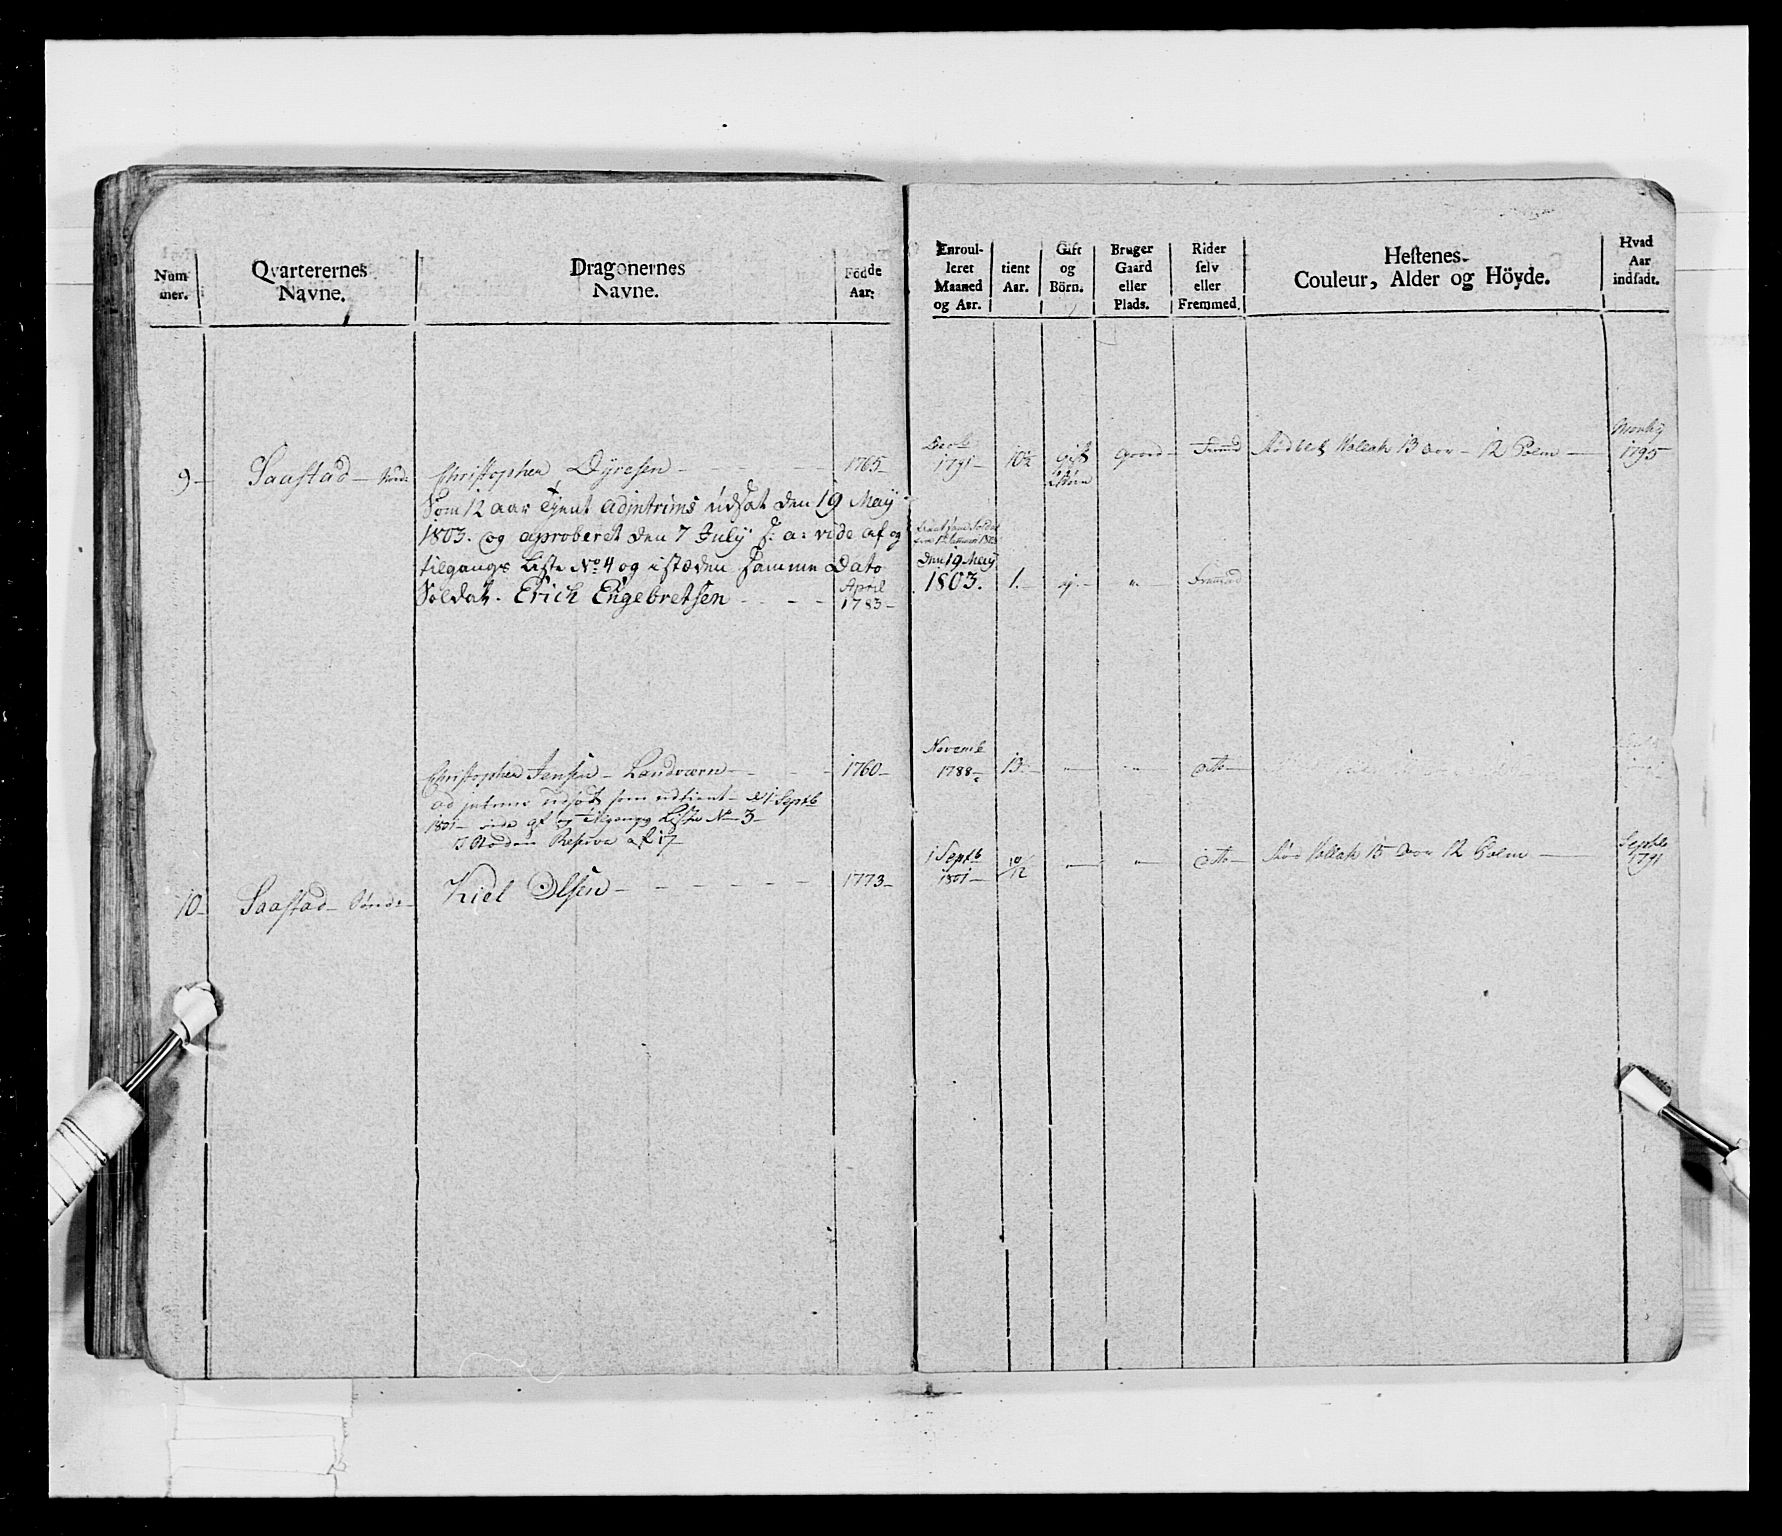 Num mer. Qvarterernes Navne. Dragonernes Navne. Födde Aar. Enroulleret Maaned og Aar. tient Aar. Gift og Börn. Bruger Gaard eller Plads. Rider selv eller Fremmed. Hestenes Couleur, Alder og Höyde. Hvad Aar indsadt.
9 - Saastad - Christopher Dyresen - 1765 - 1791 - 10½ gift Gaard - Fremd Rödblet Vallak 13 aar - 12 Palm - 1795
Som 12 aar Tient Adintrims Udsat den 19 May
1803. og aproberet den 7 July s: a: vide af og
tilgangs Liste No 4 og i stæden samme Dato
Soldat. Erich Engebretsen - - - April 1783 - den 19 May 1803. 1. - ej. - " - Fremmed
Christopher Jensen - Landværn - 1760 - Novemb 1788 - 13 - " - " - dito -
ad intrims udsat som udtient - d 1 Septb
1801 - vide af og tilgangs Liste No 3 -
i Stæden Reserve af 17
10 - Saastad - Sönd - Kiel Olsen - - - - - 1773 - 1 Septb 1801 - 10/12 " - " - dito - Vallak 15 aar 12 Palm - Septb 1791